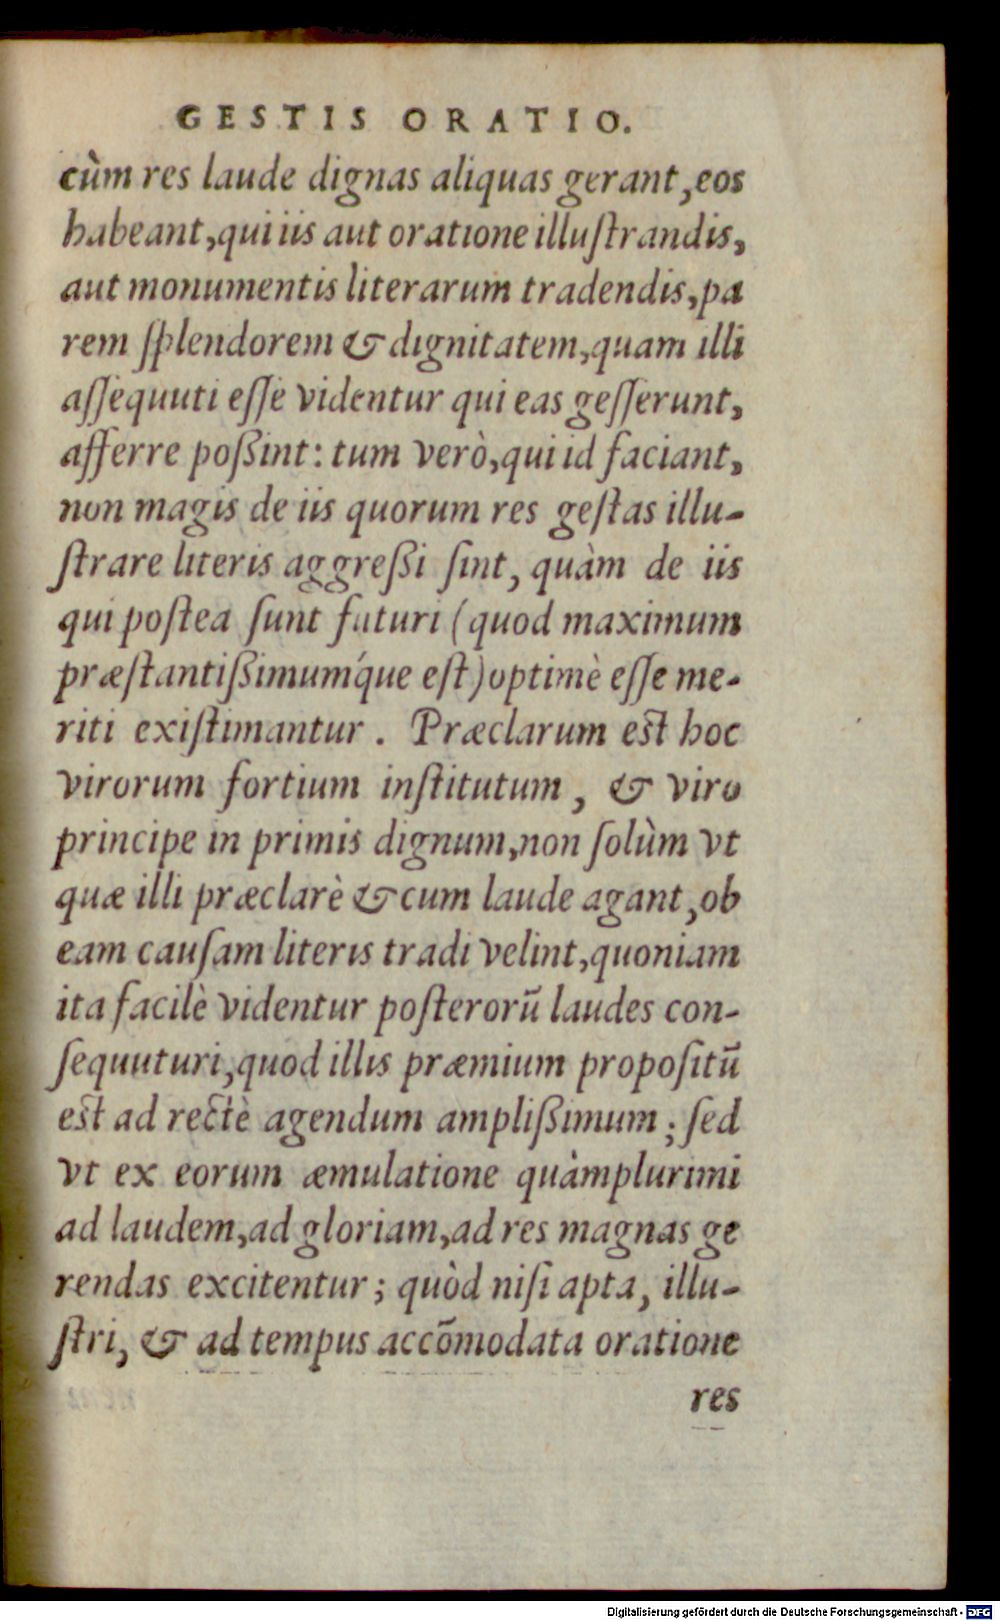 GESTIS ORATIO.
cùm res laude dignas aliquas gerant, eos
habeant, qui iis aut oratione illuſtrandis,
aut monumentis literarum tradendis, pa
rem ſplendorem & dignitatem, quam illi
aſſequuti eſſe videntur qui eas geſſerunt,
afferre poßint: tum verò, qui id faciant,
non magis de iis quorum res geſtas illu-
ſtrare literis aggreßi ſint, quàm de iis
qui poſtea ſunt futuri (quod maximum
præſtantißimumq́ue eſt) optimè eſſe me-
riti exiſtimantur. Præclarum eſt hoc
virorum fortium inſtitutum, & viro
principe in primis dignum, non ſolùm vt
quæ illi præclarè & cum laude agant, ob
eam cauſam literis tradi velint, quoniam
ita facilè videntur poſterorū laudes con-
ſequuturi, quod illis præmium propoſitū
eſt ad rectè agendum amplißimum; ſed
vt ex eorum æmulatione quàmplurimi
ad laudem, ad gloriam, ad res magnas ge
rendas excitentur; quòd niſi apta, illu-
ſtri, & ad tempus accōmodata oratione
res
Digitalisierung gefördert durch die Deutsche Forschungsgemeinschaft - DFG